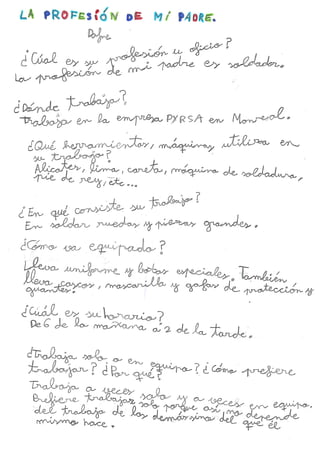 LA PROFESIÓN DE MI PADRE.
¿Cúal es su profesión u oficio?
La profesión de mi padre es soldador.
¿Dónde trabaja?
Trabaja en la empresa PYRSA en Monreal.
¿Qué herramientas, máquinas utiliza en
su trabajo?
Alicates, lima, careta, máquina de soldadura,
pie de rey, etc...
¿En qué consiste su trabajo?
En soldar ruedas y piezas grandes.
¿Cómo va equipado?
Lleva uniforme y botas especiales. También
lleva cascos, mascarilla y gafas de protección y
guantes.
¿Cuál es su horario?
De 6 de la mañana a 2 de la tarde.
¿Trabaja solo o en equipo? ¿Cómo prefiere
trabajar? ¿Por qué?
Trabaja a veces solo y a veces en equipo.
Prefiere trabajar solo porque así no depende
del trabajo de los demás sino del que él
mismo hace.